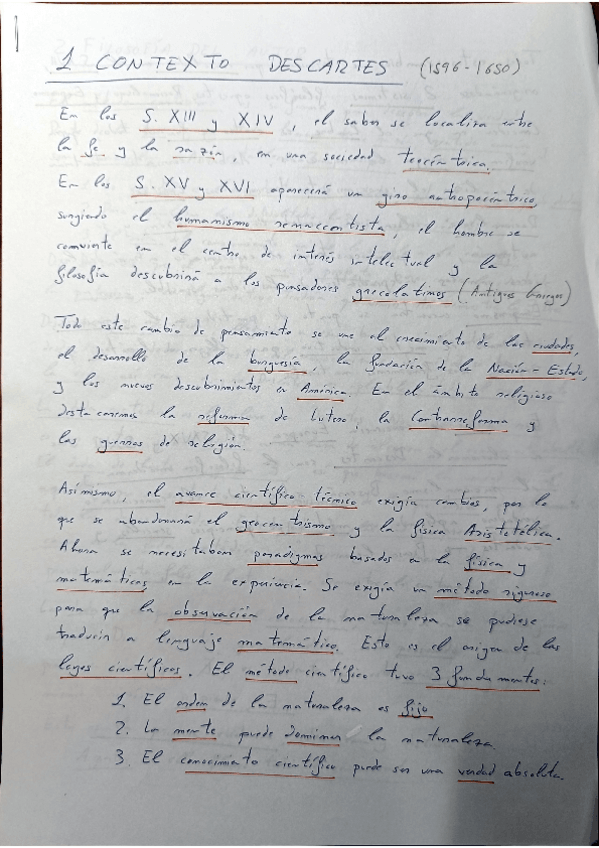 1 CONTEXTO DESCARTES (1596-1650)
En los S. XIII y XIV, el saber se localiza entre
la fe y la razón, en una sociedad teocéntrica.
En los S. XV y XVI aparecerá un giro antropocéntrico
surgiendo el humanismo renacentista, el hombre se
convierte en el centro de interés intelectual y la
filosofía descubrirá a los pensadores grecolatinos (Antiguos Griegos)
Todo este cambio de pensamiento se une al crecimiento de las ciudades,
el desarrollo de la burguesía, la fundación de la Nación-Estado,
y los nuevos descubrimientos en América. En el ámbito religioso
destacaremos la reforma de Lutero, la Contrarreforma y
las guerras de religión.
Asimismo, el avance científico técnico exigía cambios, por lo
que se abandonará el geocentrismo y la física Aristotélica.
Ahora se necesitaban paradigmas basados en la física y
matemáticas en la experiencia. Se exigía un método riguroso
para que la observación de la naturaleza se pudiese
traducir a lenguaje matemático. Esto es el origen de las
leyes científicas. El método científico tuvo 3 fundamentos:
1. El orden de la naturaleza es fijo
2. La mente puede dominar la naturaleza.
3. El conocimiento científico puede ser una verdad absoluta.